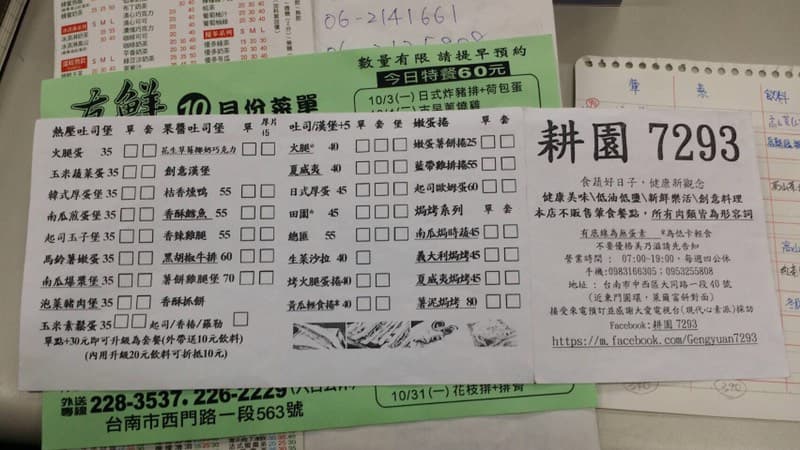 06-2141661
數量有限 請提早預約
今日特餐60元
友鮮 10月份菜單
10/3(一)日式炸豬排+荷包蛋
熱壓吐司堡 單 套
火腿蛋 35
玉米蔬菜蛋 35
韓式厚蛋堡 35
南瓜煎蛋堡 35
起司玉子堡 35
馬鈴薯嫩蛋 35
南瓜爆漿堡 35
泡菜豬肉堡 35
玉米素鬆蛋 35
果醬吐司堡 單 厚片+5
花生 草莓 椰奶 巧克力
創意漢堡
桔香燻鴨 55
香酥鱈魚 55
香辣雞腿 55
黑胡椒牛排 60
薯餅雞腿堡 70
香酥抓餅
起司/香椿/羅勒
單點+30元即可升級為套餐(外帶送10元飲料)
(內用升級20元飲料可折抵10元)
吐司/漢堡+5 單 套 堡
火腿* 40
夏威夷 40
日式厚蛋 45
田園* 45
總匯 55
生菜沙拉 40
烤火腿蛋捲 40
黃瓜輕食捲* 40
嫩蛋捲
嫩蛋薯餅捲25
藍帶雞排捲55
起司歐姆蛋60
焗烤系列 單 套
南瓜焗時蔬45
義大利焗烤45
夏威夷焗烤45
薯泥焗烤 80
耕園 7293
食蔬好日子，健康新觀念
健康美味\低油低鹽\新鮮樂活\創意料理
本店不販售葷食餐點，所有肉類皆為形容詞
有底線為無蛋素 *為低卡輕食
不要優格美乃滋請先告知
營業時間： 07:00-19:00，每週四公休
手機:0983166305；0953255808
地址：台南市中西區大同路一段40號
(近東門圓環，萊爾富斜對面)
接受來電預訂並感謝大愛電視台(現代心素派)採訪
Facebook:耕園 7293
https://m.facebook.com/Gengyuan7293
外送專線 228-3537.226-2229
台南市西門路一段563號
10/31(一)花枝排+排骨
葷 素 飲料